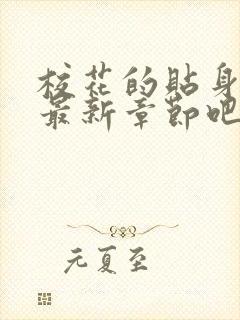 校花的貼身
最新章節吧
元夏至